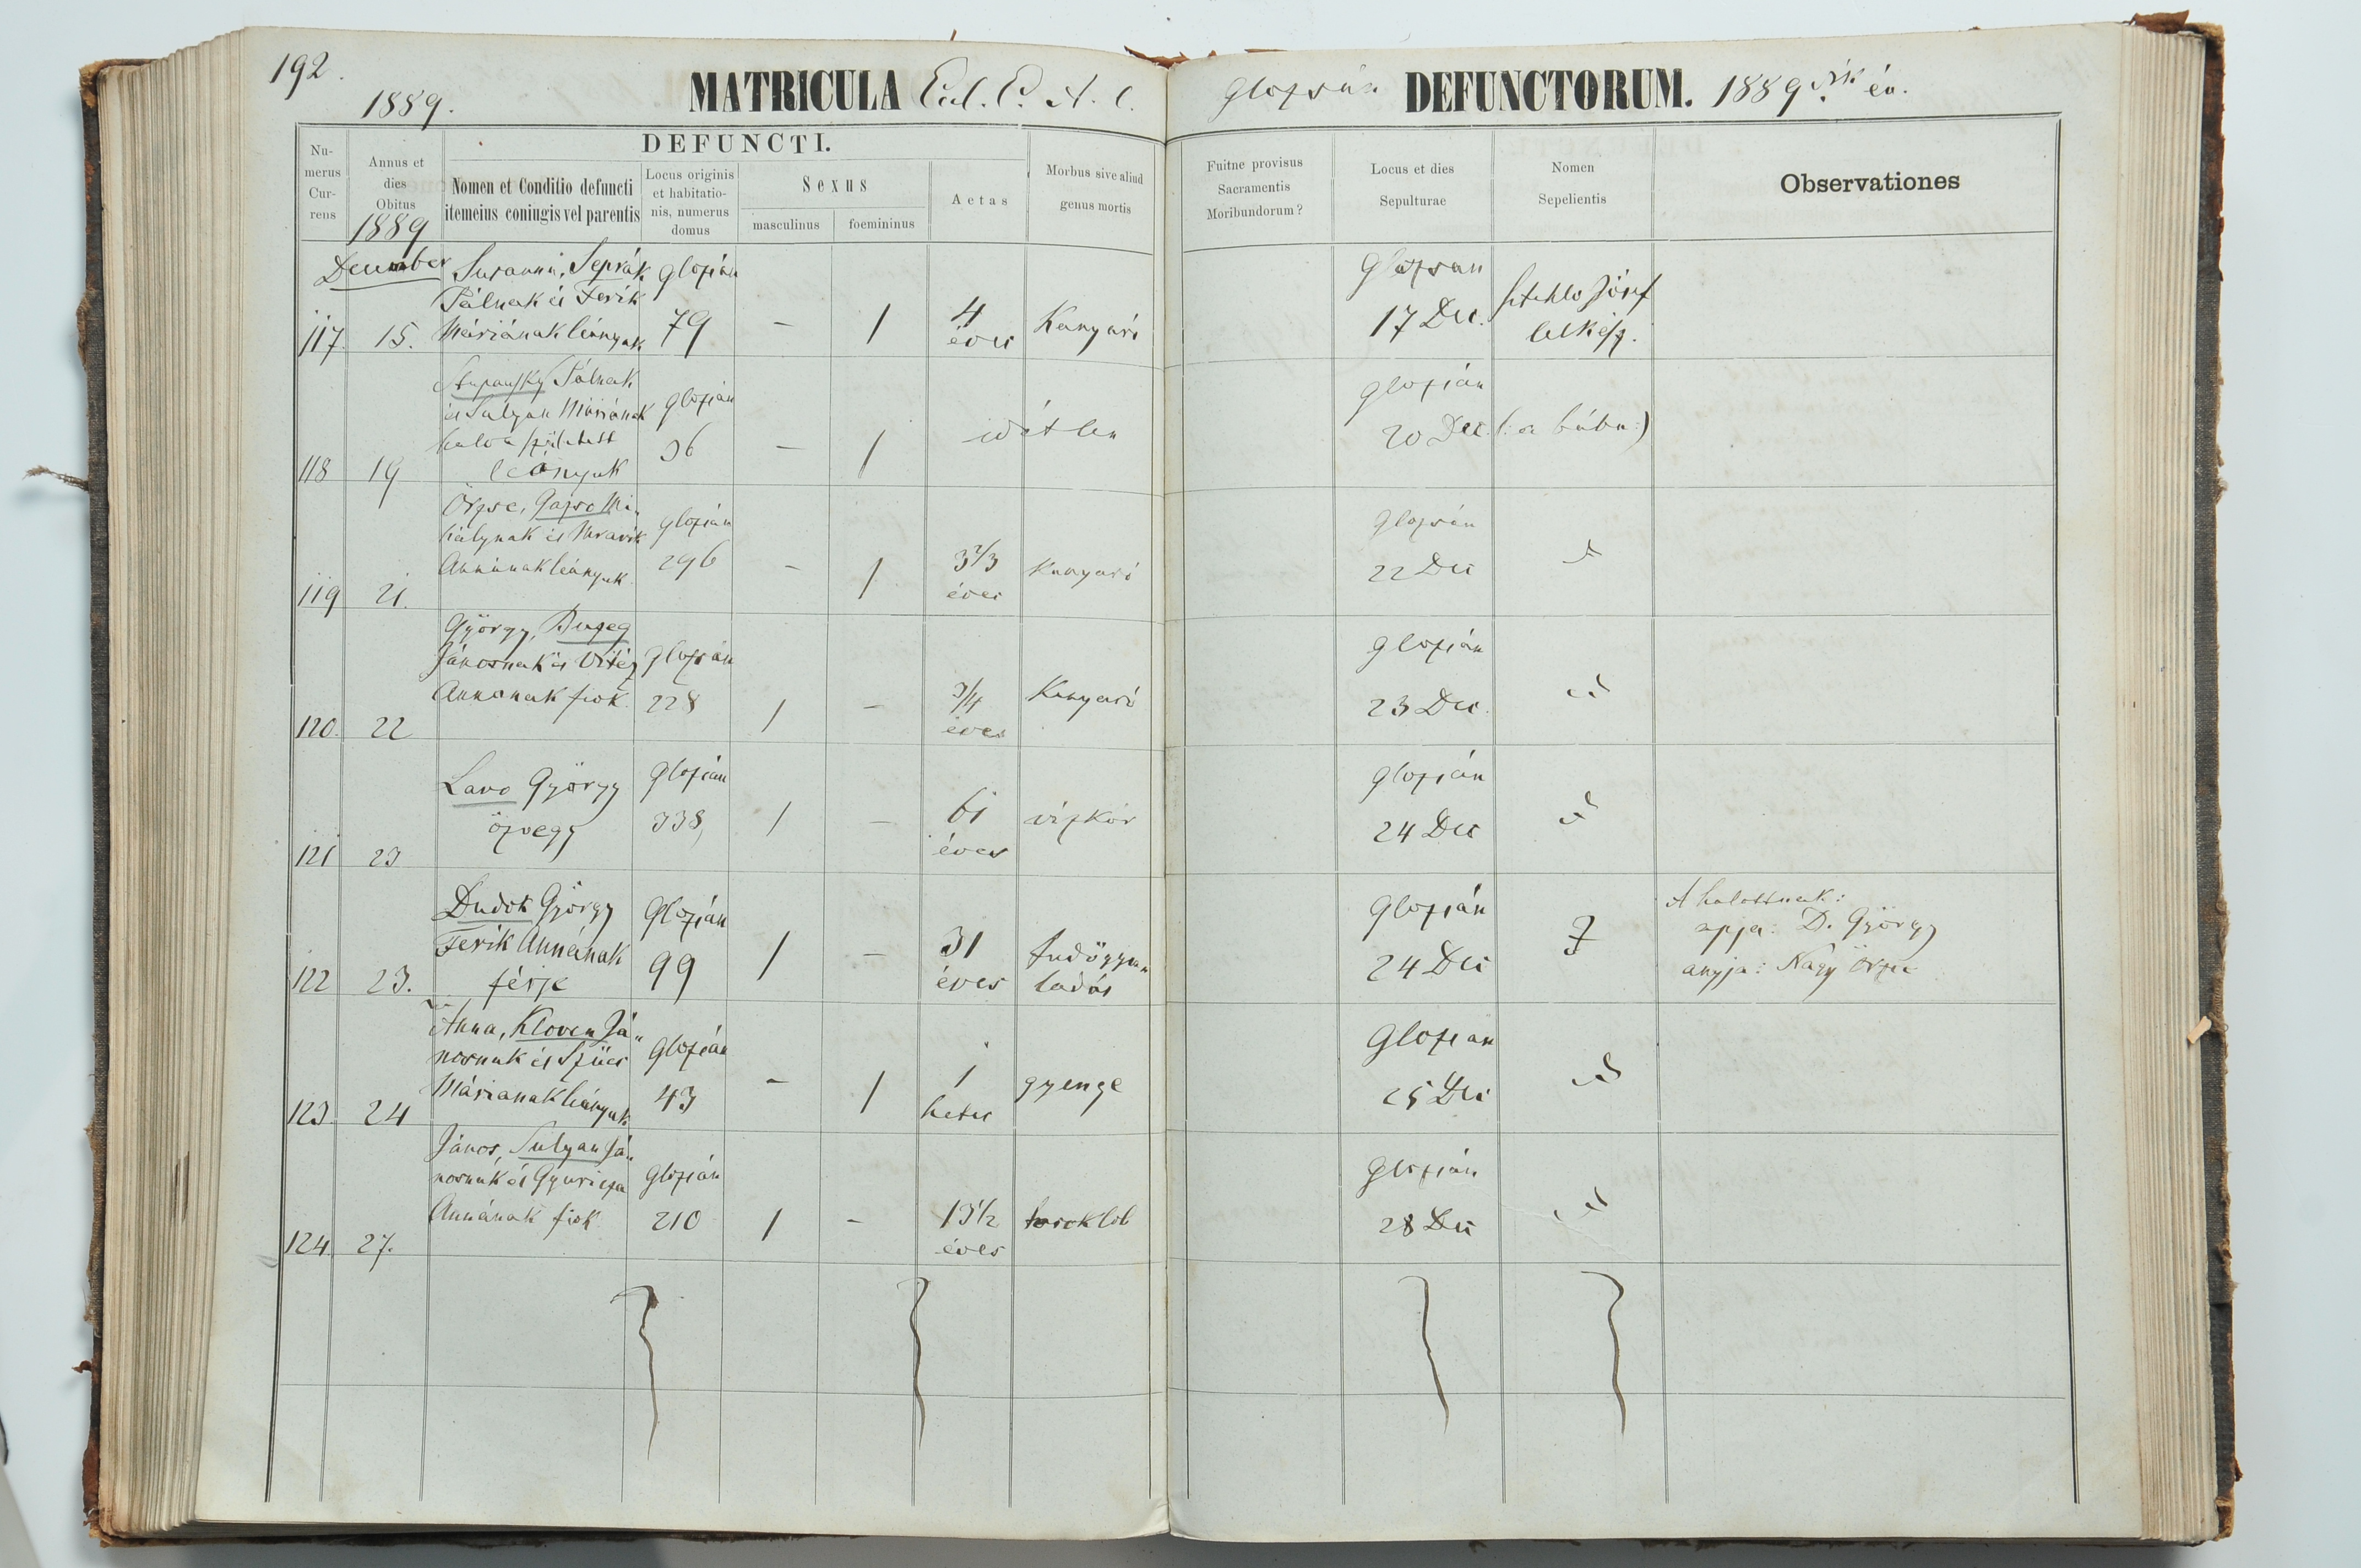 192.
1889.
MATRICULA Ecl. E. A. C.
Glozsán DEFUNCTORUM. 1889 év.
DEFUNCTI.
Nu-
merus
Cur-
rens
Annus et
dies
Obitus
1889
Nomen et Conditio defuncti
itemeius coniugis vel parentis
Locus originis
et habitatio-
nis, numerus
domus
Sexus
masculinus
foemininus
Aetas
Morbus sive aliud
genus mortis
Fuitne provisus
Sacramentis
Moribundorum?
Locus et dies
Sepulturae
Nomen
Sepelientis
Observationes
December
117. 15.
Susanna,Seprák
Pálnak és Ferik
Máriának leányuk
Glozsán
79
-
1
4
éves
Kanyaró
Glozsan
17 Dec.
Sztehlo József
lelkész.
118 19
Stupanszky Pálnak
és Sulyan Máriának
halva született
leányuk
Glozsán
36
-
1
időtlen
Glozsán
20 Dec.
(: a bába :)
119 21.
Örzse, Gazso Mi-
hálynak és Mravik
Annának leányuk
Glozsán
296
-
1
3 2/3
éves
Kanyaró
Glozsán
22 Dec
120. 22
György, Buzeg
Jánosnak és Vitéz
Annának fiok
Glozsán
228
1
-
3/4
éves
Kanyaró
Glozsán
23 Dec.
121 23
Lavo György
özvegy
Glozsán
338,
1
-
61
éves
vízkór
Glozsán
24 Dec
122 23.
Dudok György
Ferik Annának
férje
Glozsán
99
1
-
31
éves
tüdőgyul-
ladás
Glozsán
24 Dec
A halottnak:
apja: D. György
anyja: Nagy Örzse
123. 24
Anna, Kloven Já-
nosnak és Szücs
Máriának leányuk
Glozsán
43
-
1
1
hetes
gyenge
Glozsan
25 Dec
124. 27.
János, Sulyan Já-
nosnak és Gyuricza
Annának fiok
Glozsán
210
1
-
13 1/2
éves
toroklob
Glozsán
28 Dec